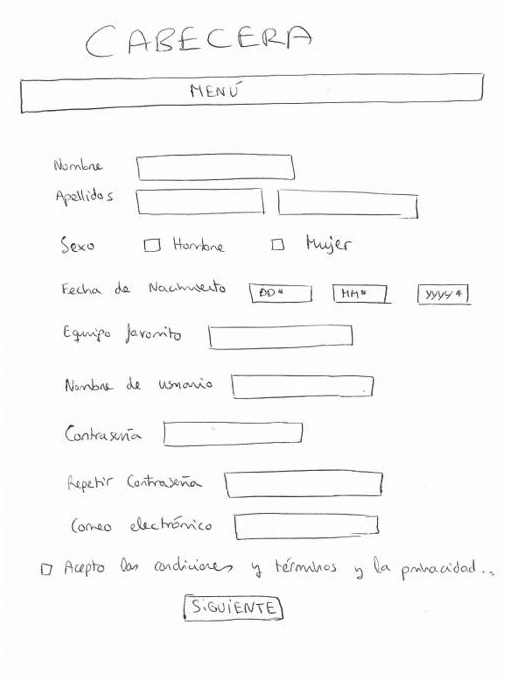 CABECERA
MENÚ
Nombre
Apellidos
Sexo Hombre Mujer
Fecha de Nacimiento DD* MM* YYYY*
Equipo favorito
Nombre de usuario
Contraseña
Repetir Contraseña
Correo electrónico
Acepto las condiciones y términos y la privacidad...
SiGUiENTE